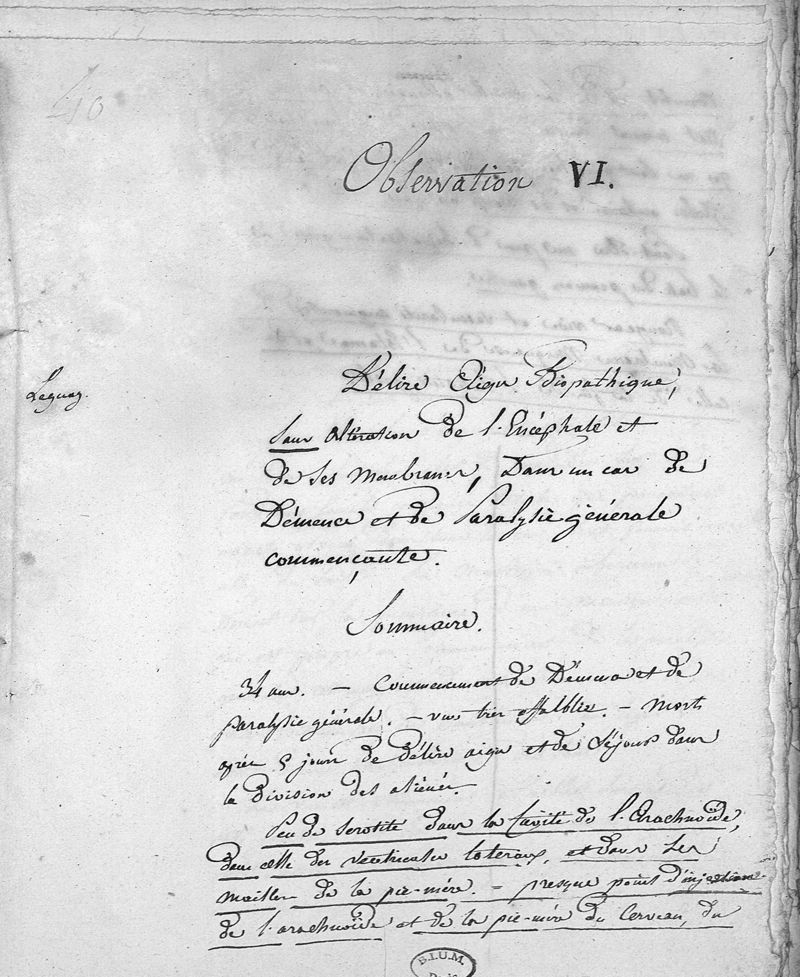 40
Observation VI.
Délire Aigu Idiopathique,
Leguay.
Sans altération de l'Encéphale et
de ses Membranes, Dans un cas de
Démence et de Paralysie générale
commençante.
Sommaire.
34 ans. — Commencement de Démence et de
paralysie générale. — vue très affaiblie. — Mort
après 5 jours de délire aigu et de séjour dans
la division des aliénés.
Peu de sérosité dans la Cavité de l'Arachnoïde,
dans celle des ventricules latéraux, et dans les
mailles de la pie-mère. — presque point d'injection
de l'arachnoïde et de la pie-mère du Cerveau, du
B.I.U.M.